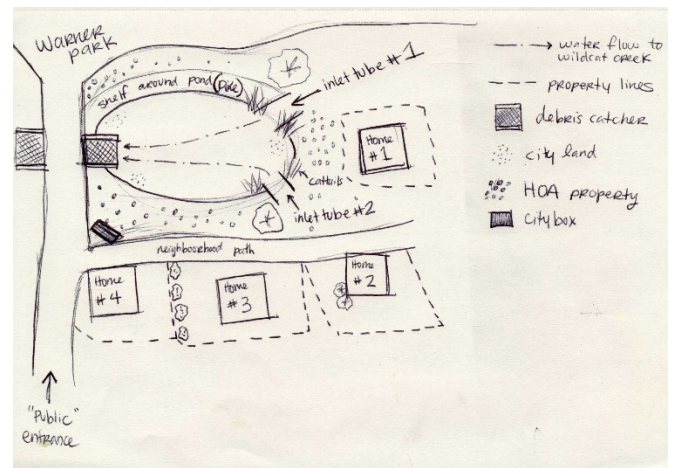 Warner
park
shelf around pond (Dike)
inlet tube #1
cattails
inlet tube #2
Home
#1
neighbourhood path
Home
#4
Home
#3
Home
#2
"Public"
entrance
water flow to
wildcat creek
property lines
debris catcher
city land
HOA property
city box